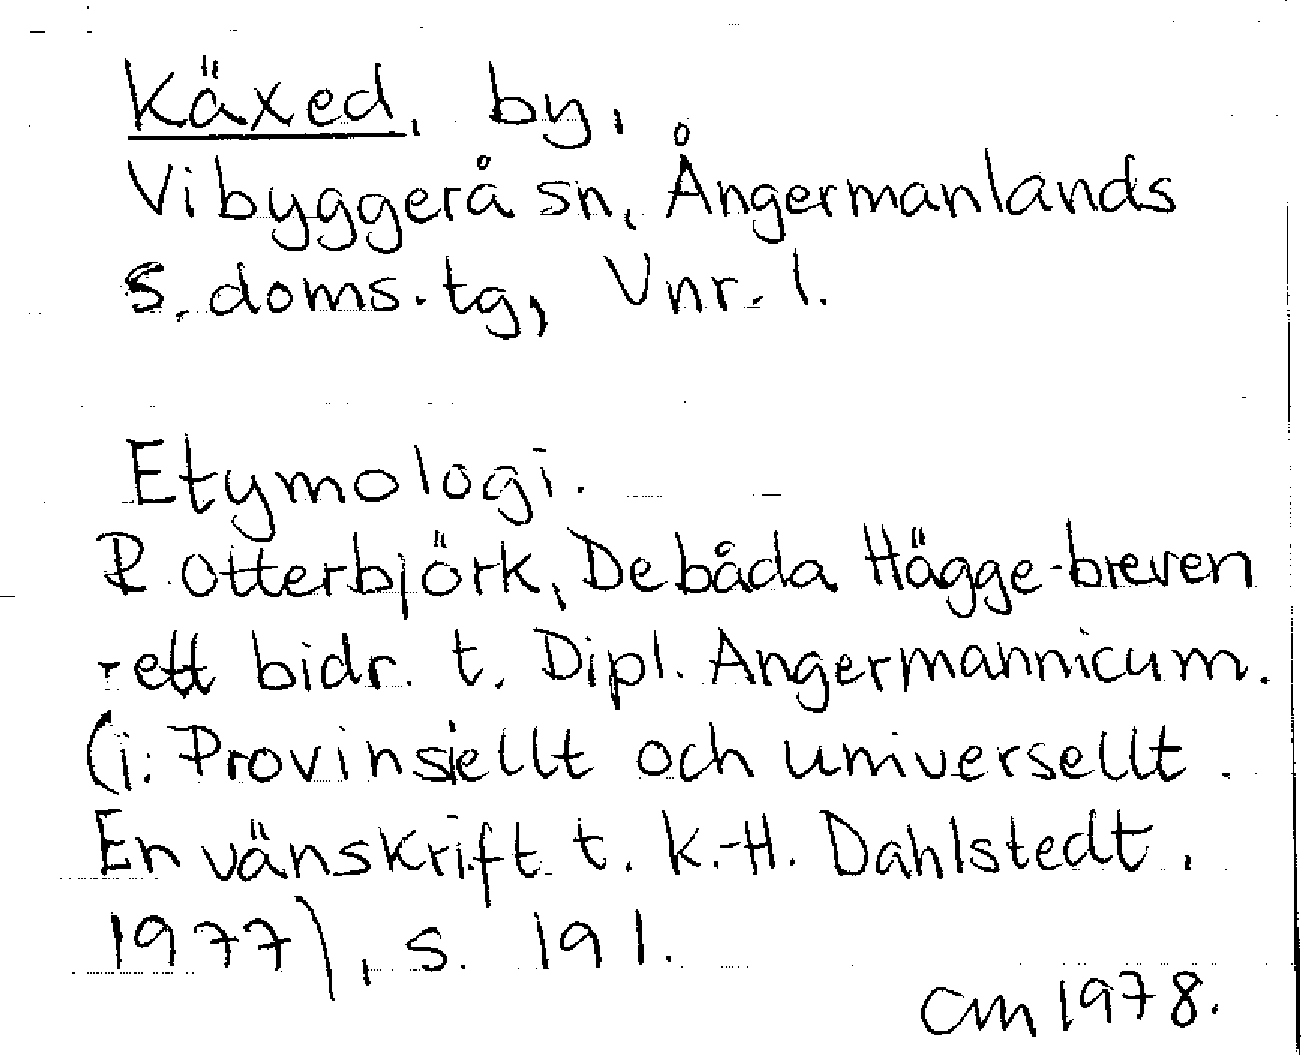 Käxed, by,
Vibyggerå sn, Ångermanlands
s. doms. tg, Vnr. 1.
Etymologi.
R. Otterbjörk, De båda Hägge-breven
- ett bidr. t. Dipl. Angermannicum.
(i: Provinsiellt och universellt.
En vänskrift t. K.-H. Dahlstedt.
1977), s. 191.
CM 1978.